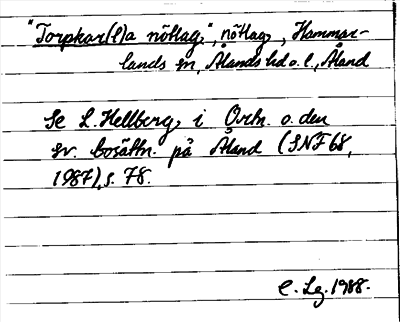 "Torpkar(l)a nötlag", nötlag, Hammar-
lands sn, Ålands hd o. l., Åland
Se L. Hellberg, i Ortn. o. den
sv. bosättn. på Åland (SNF 68,
1987), s. 78.
C. Lg. 1988.